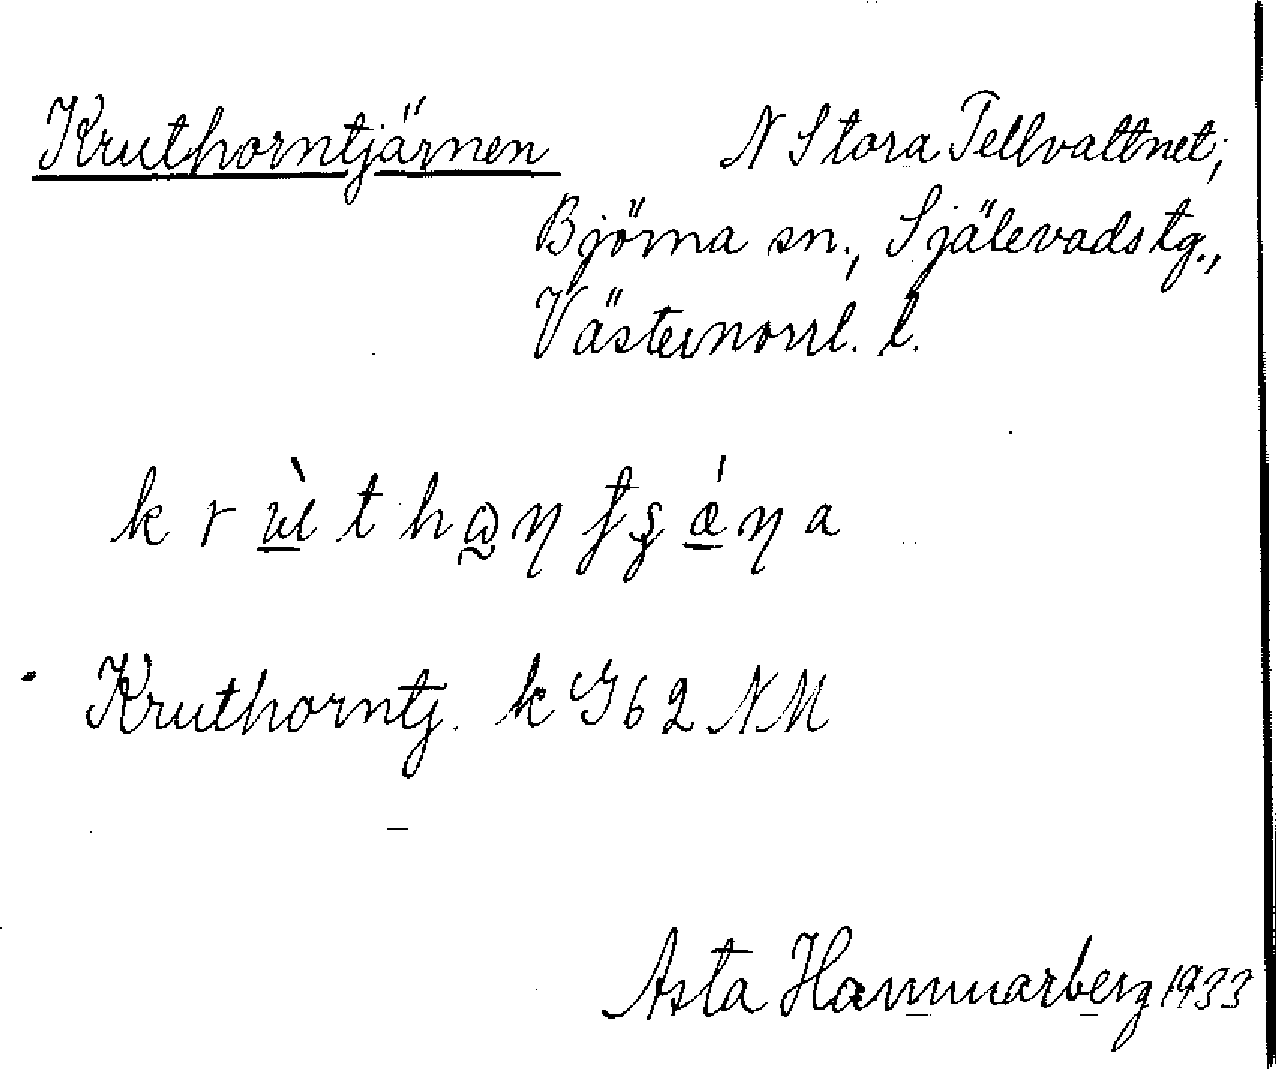 Kruthorntjärnen N Stora Tellvattnet;
Björna sn., Själevads tg.,
Västernorrl. l.
Kruthorntj. k J62 NM
Asta Hammarberg 1933